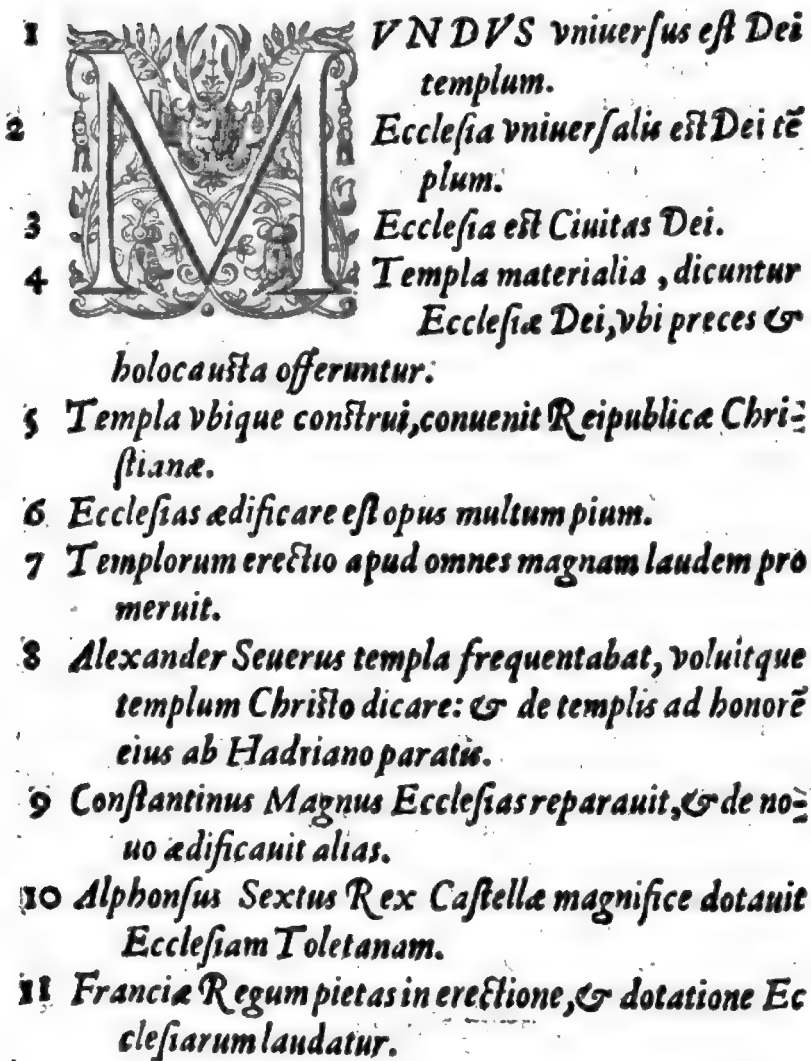 1 MVNDVS vniuerſus eſt Dei
templum.
2 Eccleſia vniuerſalis eſt Dei tẽ
plum.
3 Eccleſia eſt Ciuitas Dei.
4 Templa materialia, dicuntur
Eccleſiæ Dei, vbi preces &
holocauſta offeruntur.
5 Templa vbique conſtrui, conuenit Reipublicæ Chri-
ſtianæ.
6 Eccleſias ædificare eſt opus multum pium.
7 Templorum erectio apud omnes magnam laudem pro
meruit.
8 Alexander Seuerus templa frequentabat, voluitque
templum Chriſto dicare: & de templis ad honorẽ
eius ab Hadriano paratis.
9 Conſtantinus Magnus Eccleſias reparauit, & de no-
uo ædificauit alias.
10 Alphonſus Sextus Rex Caſtellæ magnifice dotauit
Eccleſiam Toletanam.
11 Franciæ Regum pietas in erectione, & dotatione Ec
cleſiarum laudatur.